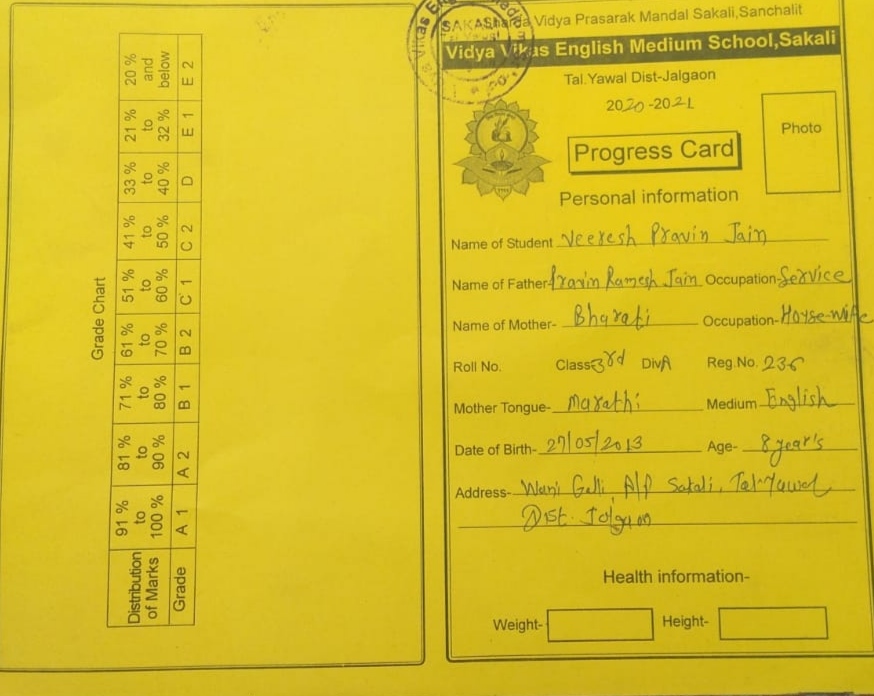 Grade Chart
Distribution of Marks 91 % to 100 % 81 % to 90 % 71 % to 80 % 61 % to 70 % 51 % to 60 % 41 % to 50 % 33 % to 40 % 21 % to 32 % 20 % and below
Grade A 1 A 2 B 1 B 2 C 1 C 2 D E 1 E 2
Vidya Prasarak Mandal Sakali,Sanchalit
Vidya Vikas English Medium School,Sakali
Tal.Yawal Dist-Jalgaon
2020-2021
Photo
Progress Card
Personal information
Name of Student Veeresh Pravin Jain
Name of Father- Pravin Ramesh Jain Occupation- Service
Name of Mother- Bharati Occupation- House-wife
Roll No. Class 3rd Div A Reg.No. 236
Mother Tongue- Marathi Medium English
Date of Birth- 27/05/2013 Age- 8 year's
Address- Wani Galli, A/P Sakali, Tal-Yawal
Dist. Jalgaon
Health information-
Weight- Height-